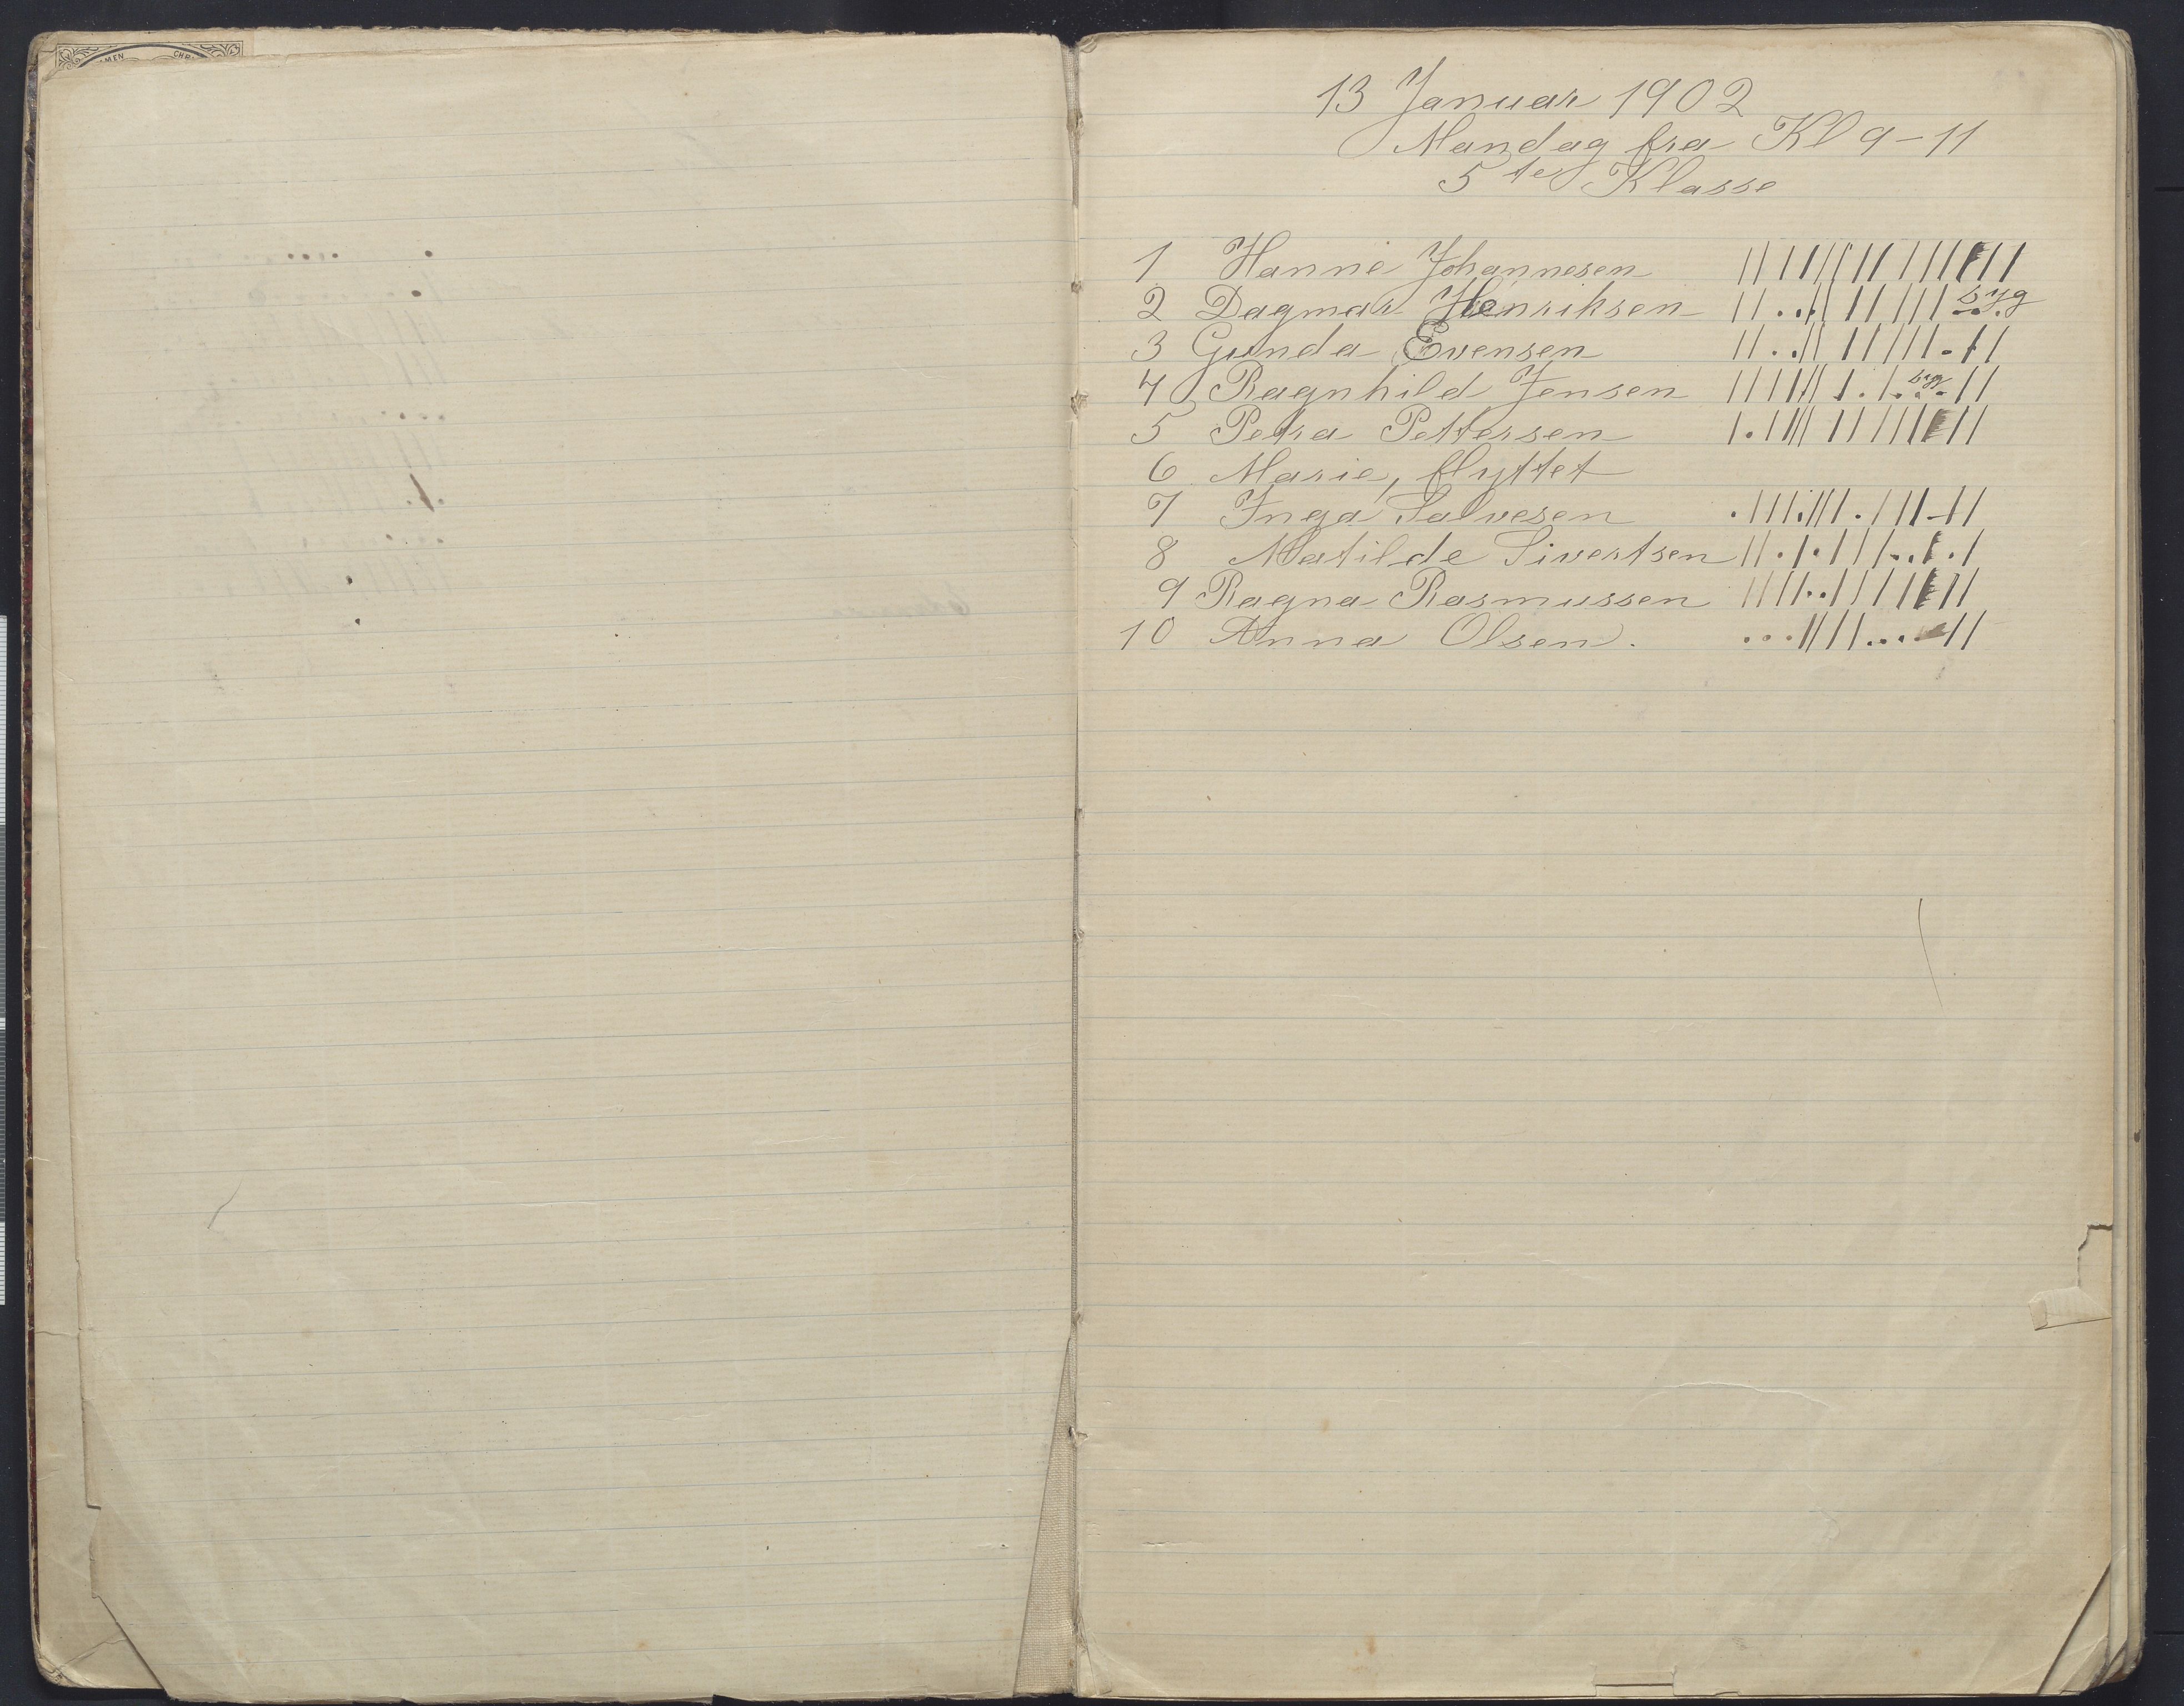 AMEN CHR
13 Januar 1902
Mandag fra Kl 9-11
5te Klasse
1 Hanna Johannesen ||||||||||||||
2 Dagmar Henriksen ||..||||||| syg
3 Gunda Evensen ||..|||||||-||
4 Ragnhild Jensen ||||||.|. syg ||
5 Petra Pettersen |.|||||||||||
6 Marie, flyttet
7 Inga Salvesen .|||.|||.|||-||
8 Matilde Sivertsen ||.|.|||-..|.|
9 Ragna Rasmussen ||||..||||||||
10 Anna Olsen. ...||||....-||